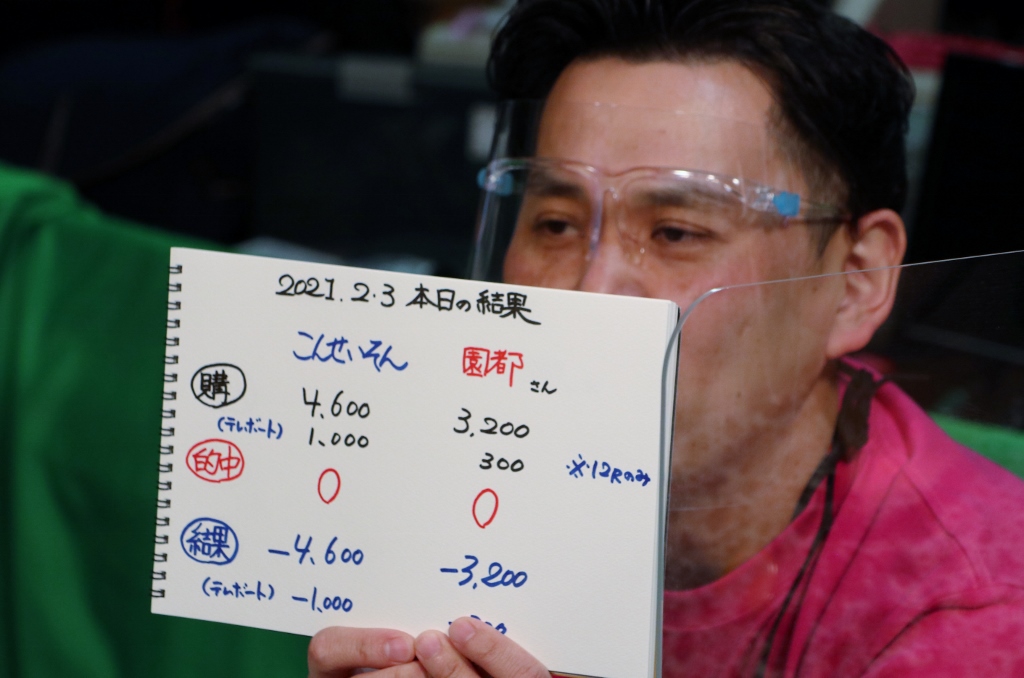 2021.2.3 本日の結果
こんせいそん 園都さん
購 4,600 3,200
(テレボート) 1,000 300 ※12Rのみ
的中 0 0
結果 -4,600 -3,200
(テレボート) -1,000